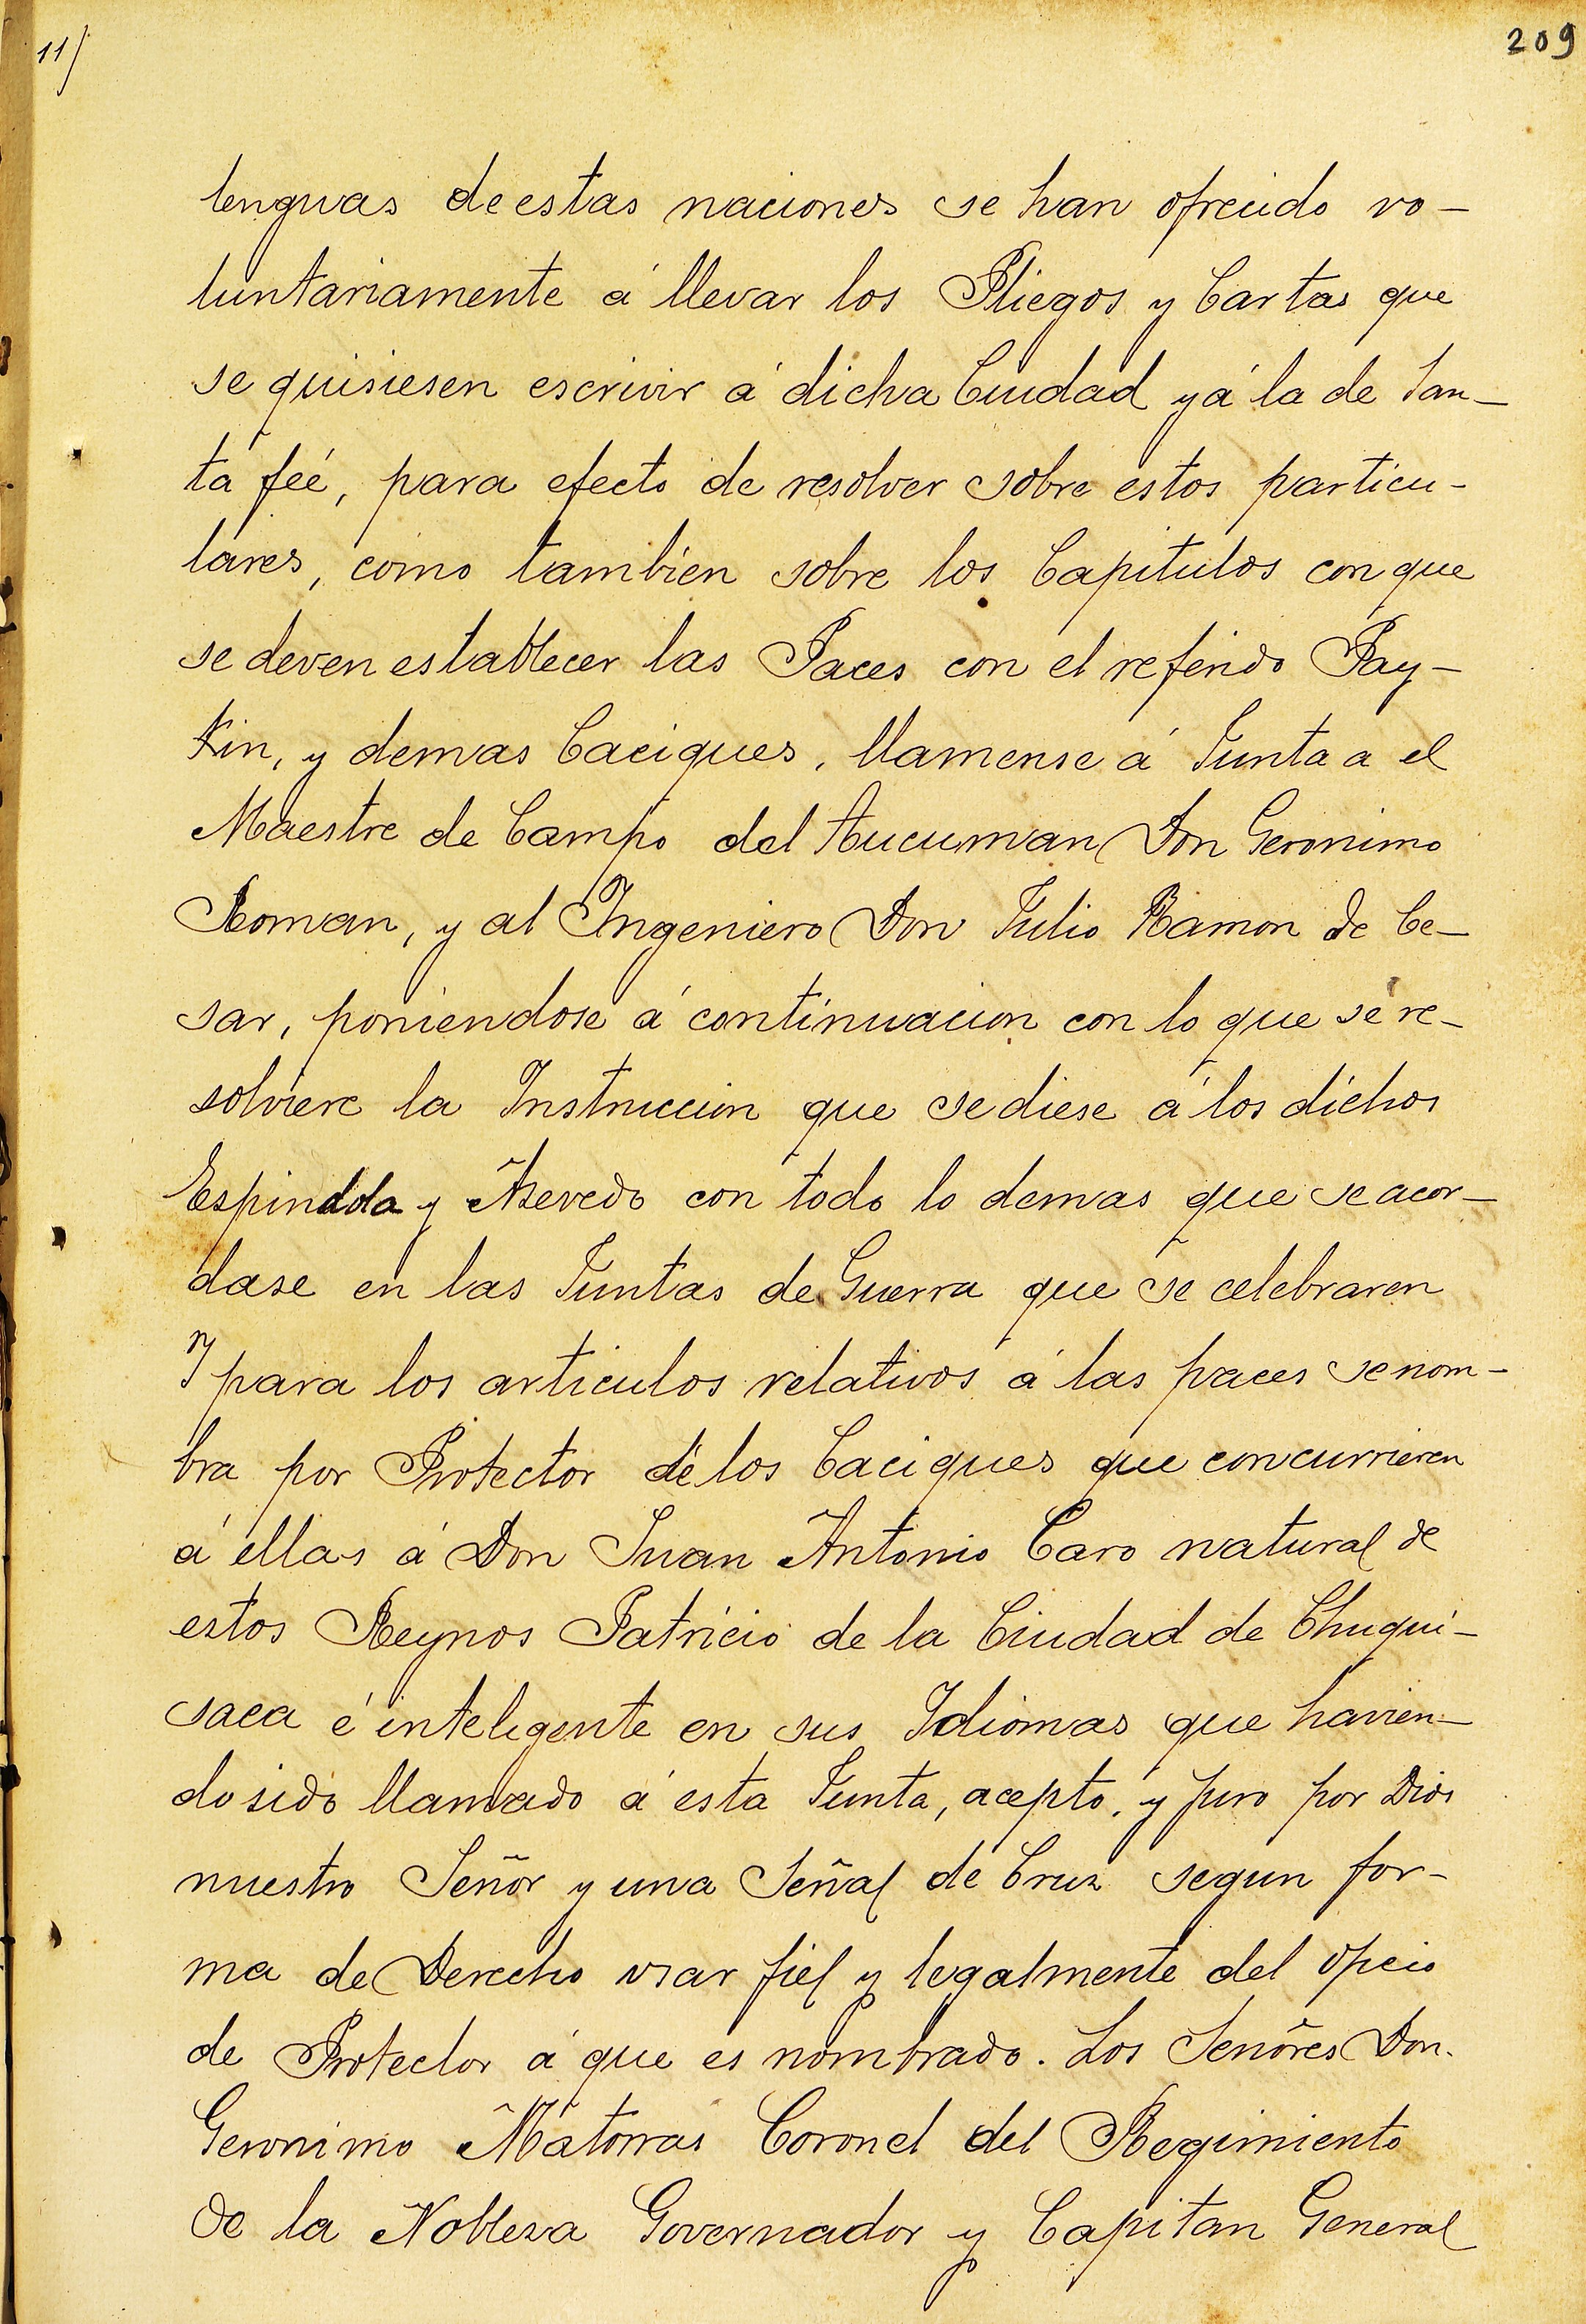 11/
209
lenguas de estas naciones se han ofrecido vo-
luntariamente á llevar los Pliegos y Cartas que
se quisiesen escrivir á dicha Ciudad y á la de San-
ta feé, para efecto de resolver sobre estos particu-
lares, como tambien sobre los Capitulos con que
se deven establecer las Paces con el referido Pay-
kin, y demas Caciques, llamense á Junta a el
Maestre de Campo del tucuman Don Geronimo
Roman, y al Ingeniero Don Julio Ramon de Ce-
sar, poniendose á continuacion con lo que se re-
solviere la Instruccion que se diese á los dichos
Espindola y Asevedo con todo lo demas que se acor-
dase en las Juntas de Guerra que se celebraren
Y para los articulos relativos á las paces se nom-
bra por Protector de los Caciques que concurrieren
á ellas á Don Juan Antonio Caro natural de
estos Reynos Patricio de la Ciudad de Chuqui-
saca é inteligente en sus Idiomas que havien-
do sido llamado á esta Junta, acepto, y juro por Dios
nuestro Señor y una Señal de Cruz segun for-
ma de Derecho usar fiel y legalmente del oficio
de Protector á que es nombrado. Los Señores Don.
Geronimo Matorras Coronel del Regimiento
de la Nobleza Governador y Capitan General